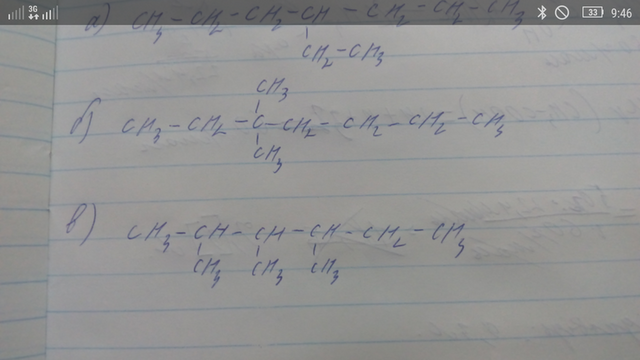 3G 33 9:46
а) CH3-CH2-CH2-CH-CH2-CH2-CH3
CH2-CH3
CH3
б) CH3-CH2-C-CH2-CH2-CH2-CH3
CH3
в) CH3-CH-CH-CH-CH2-CH3
CH3 CH3 CH3